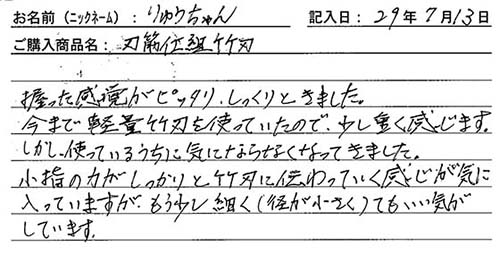 お名前（ニックネーム）：りゅうちゃん 記入日：29年7月13日
ご購入商品名：刃筋仕組竹刀
握った感覚がピッタリ、しっくりときました。
今まで軽量竹刀を使っていたので、少し重く感じます。
しかし、使っているうちに気にならなくなってきました。
小指の力がしっかりと竹刀に伝わっていく感じが気に
入っていますが、もう少し細く（径が小さく）てもいい気が
しています。